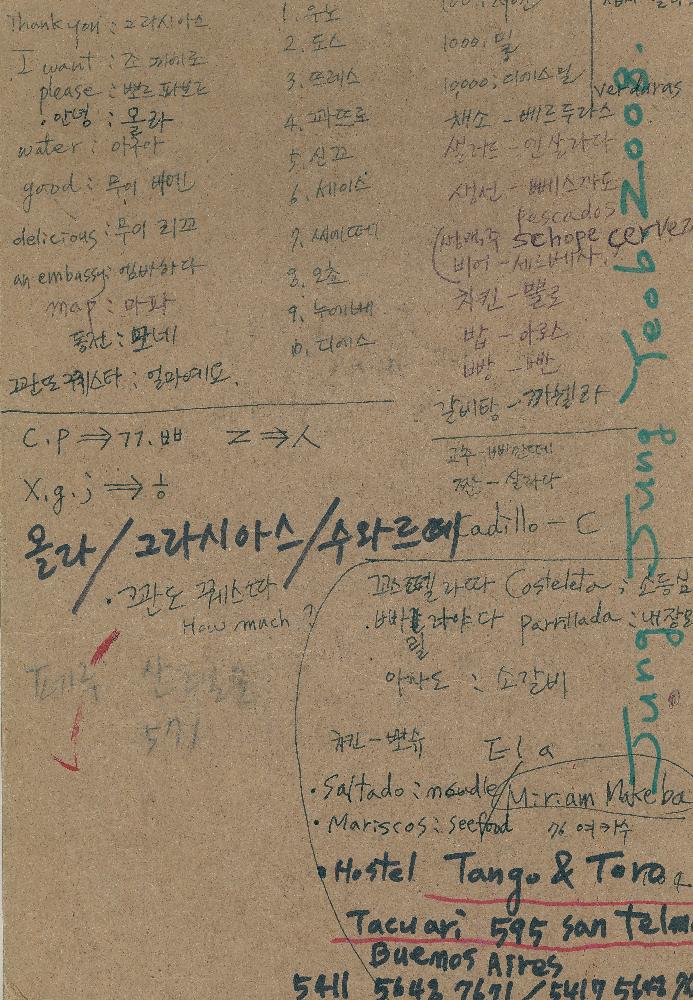 Thank you : 그라시아스
I want : 조 끼에로
please : 뽀르 파보르
· 안녕 : 올라
water : 아구아
good : 무이 비엔
delicious : 무이 리꼬
an embassy : 엠바하다
map : 마파
동전 : 모네
꾸안또 꾸에스타 : 얼마예요.
1. 우노
2. 도스
3. 뜨레스
4. 꽈뜨로
5. 신꼬
6. 세이스
7. 씨에떼
8. 오쵸
9. 누에베
10. 디에스
1000; 밀
10000; 디에스 밀
verduras
채소 - 베르두라스
샐러드 - 엔살라다
생선 - 뻬스까도
pescados
(생맥주 schope cervez
비어 - 세르베사.
치킨 - 뽈로
밥 - 아로스
빵 - 빤
갈비탕 - 까웰라
C.p ⇒ ㄲ.ㅃ Z ⇒ ㅅ
X.g.j ⇒ ㅎ
고추 - 삐깐떼
짠 - 살라다
Cadillo - C
올라/그라시아스/수와르떼
· 꾸안또 꾸에스따
How much?
페루
571
꼬스뗄라따 Costeleta ; 소등심
Parrillada : 내장
아사도 : 소갈비
Ela
· Saltado : noudle
Miriam Makeba
· Mariscos : seefood
76 여가수
· Hostel Tango & Toro
Tacuari 595 san telm
Buenos Aires
5411 5648 7671 / 5417 5648 7
Jung Jung Yeob 2008.